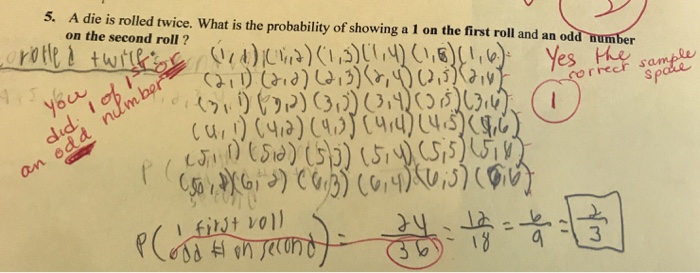 5. A die is rolled twice. What is the probability of showing a 1 on the first roll and an odd number
on the second roll ?
rolled twice:
(1,1) (1,2) (1,3) (1,4) (1,5) (1,6)
(2,1) (2,2) (2,3) (2,4) (2,5) (2,6)
(3,1) (3,2) (3,3) (3,4) (3,5) (3,6)
(4,1) (4,2) (4,3) (4,4) (4,5) (4,6)
(5,1) (5,2) (5,3) (5,4) (5,5) (5,6)
(6,1) (6,2) (6,3) (6,4) (6,5) (6,6)
Yes the
correct sample
space
1
you
did 1 of 1st or
an odd number
P(1 first roll
odd # on second) = 24/36 = 12/18 = 6/9 = 2/3